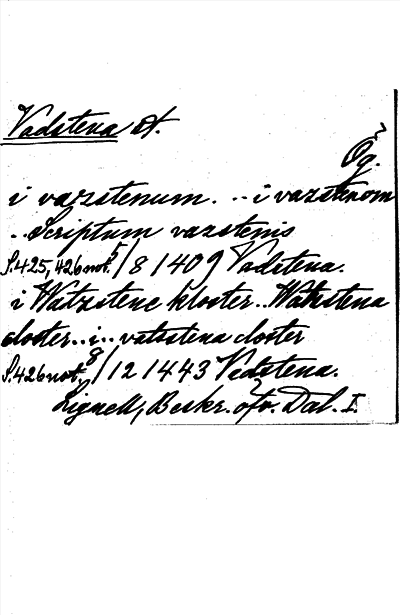 Vadstena st.
Ög.
i vazstenum. .. i vazstenom
.. Scriptum vazstenis
S. 425, 426 not. 5/8 1409 Vadstena.
i Watzstene kloster.. Watzstena
closter.. i.. vatsstena closter
S. 426 not., 8/12 1443 Vedstena.
Lignell, Beskr. öfv. Dal. I.